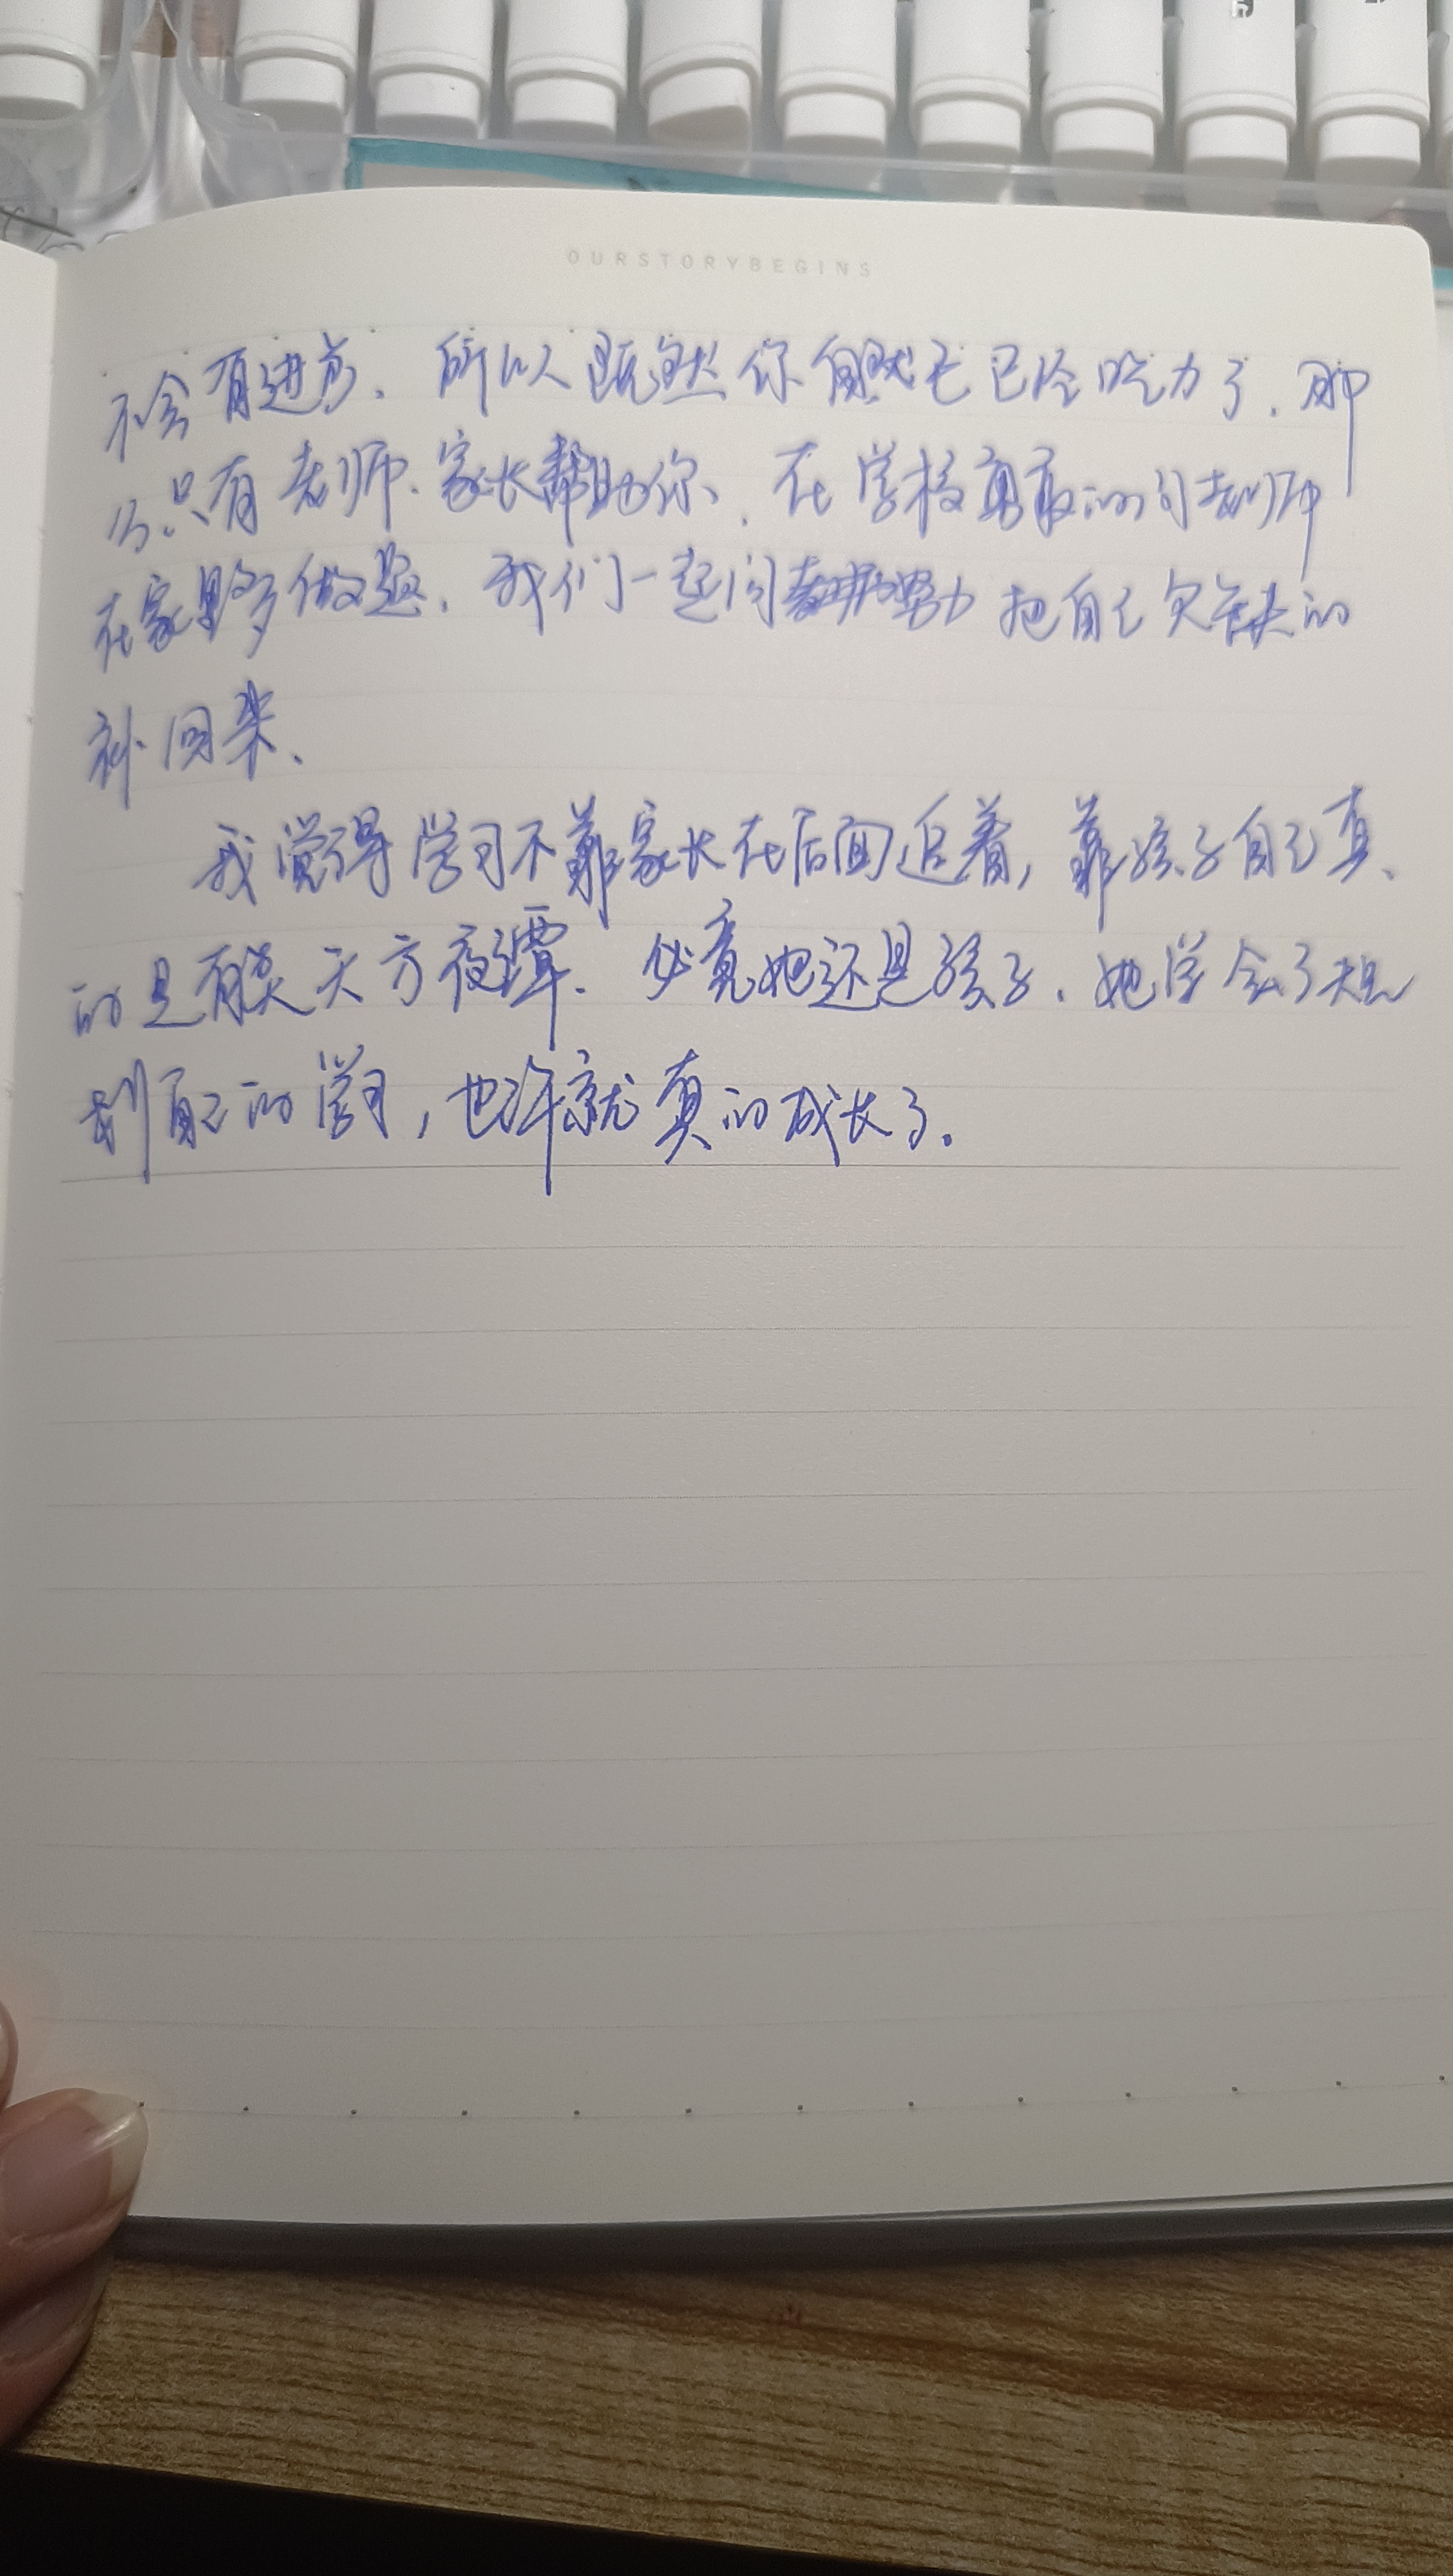 OURSTORYBEGINS
不会有进步.所以既然你自己已经吃力了.那
么只有老师.家长帮助你.在学校勇敢的问老师
在家里多做题.我们一起努力把自己欠缺的
补回来.
我觉得学习不靠家长在后面追着,靠孩子自己真.
的是有点天方夜谭.必竟她还是孩子.她学会了规
划自己的学习,也许就真的成长了。